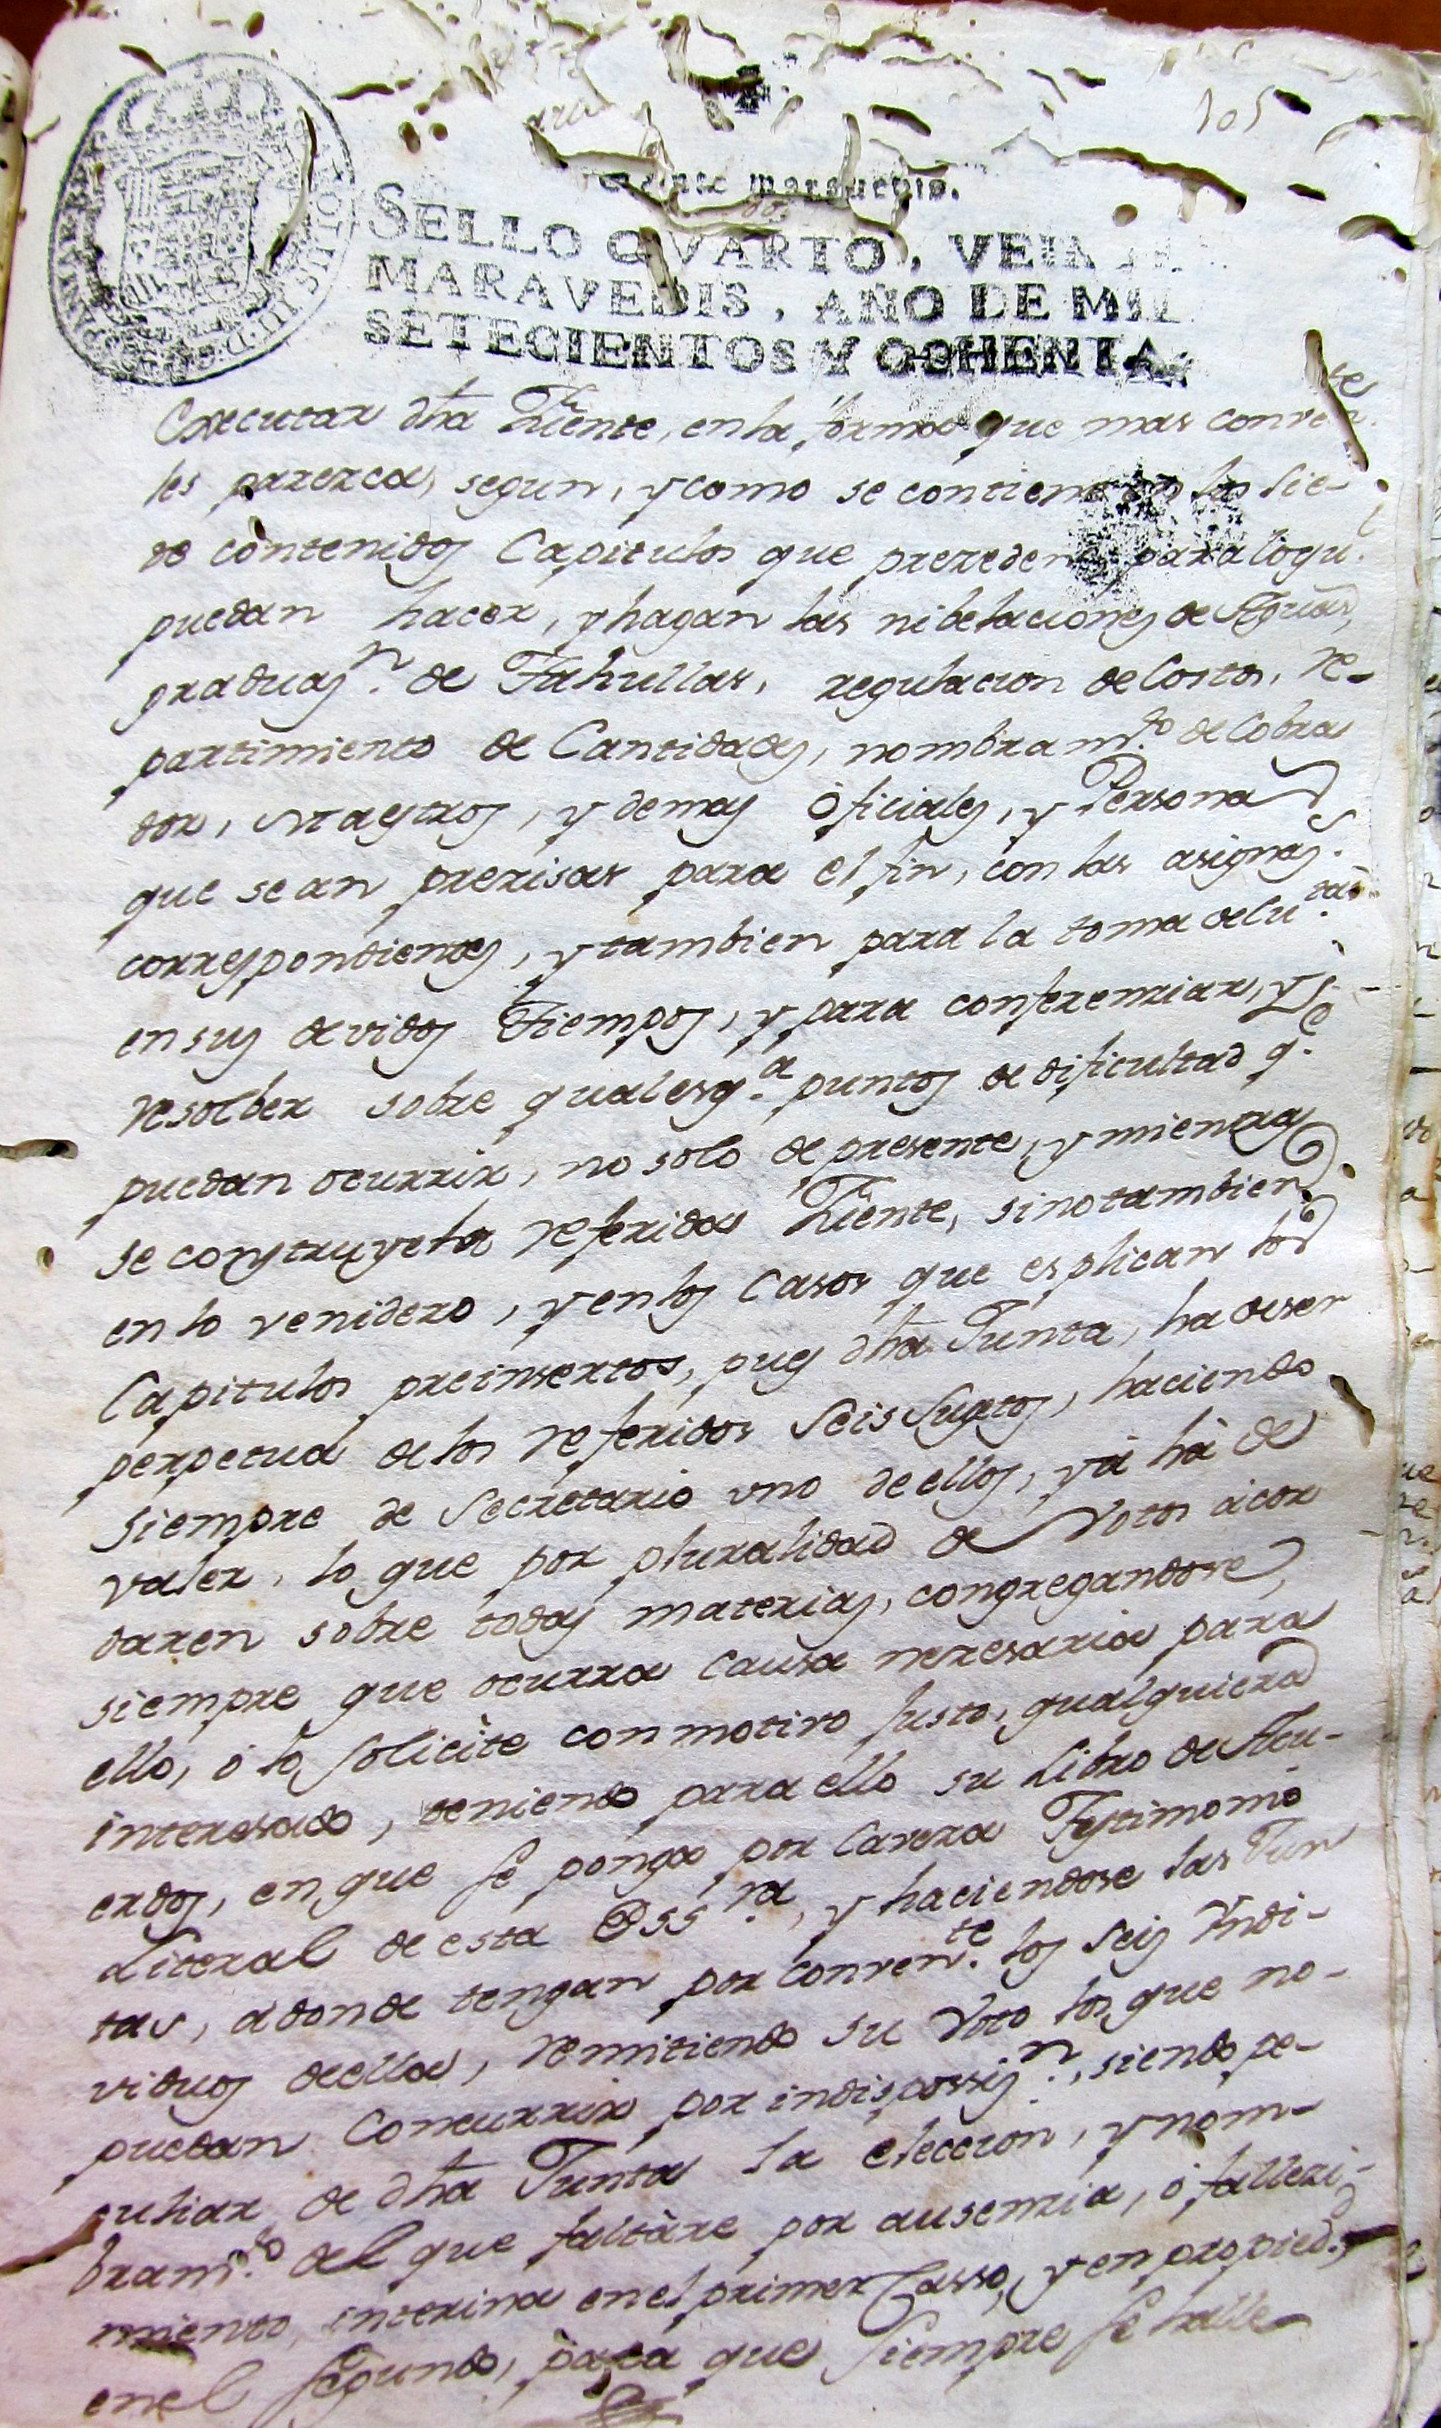 105
Veinte maravedis.
SELLO QVARTO, VEINTE
MARAVEDIS, AÑO DE MIL
SETECIENTOS Y OCHENTA.
Executar dha Fuente, en la forma que mas conven.te
les parezca, segun, y como se contiene en los Sie-
te contenidos Capitulos que preceden, para lo qu.
puedan hacer, y hagan las nibelaciones de Aguas,
graduas.n de Tahullas, regulacion de Costos, re-
partimiento de Cantidades, nombram.to de Cobra
dor, Maestros, y demas Oficiales, y Personas
que sean precisas para el fin, con las asignas.
correspondientes, y tambien para la toma de Cu.tas
en sus devidos Tiempos, y para conferenziar, y
resolber sobre qualesq.a puntos de dificultad q.e
puedan ocurrir, no solo de presente, y mientras
se construye la referida Fuente, sino tambien
en lo venidero, y en los Casos que esplican los
Capitulos preinsertos, pues dha Junta, ha de ser
perpetua de los referidos Seis Sugetos, haciendo
siempre de Secretario uno de ellos, y à hà de
valer, lo que por pluralidad de Votos àcor
daren sobre todas materias, congregandose
siempre que ocurra Causa necesaria para
ello, ó lo solicite con motivo Justo, qualquiera
interesado, teniendo para ello su Libro de Acu-
erdos, en que se ponga por Caveza Testimonio
Literal de esta Ess.ra, y haciendose las Jun
tas, adonde tengan por conven.te los Seis Yndi-
viduos de ella, remitiendo su Voto los que no
puedan Concurrir por indispossis.n, siendo pe-
culiar de dha Junta la eleccion, y nom-
bram.to del que faltàre por ausenzia, ó falleci-
miento, interina en el primer Casso, y en propied.d
en el segundo, para que siempre se halle